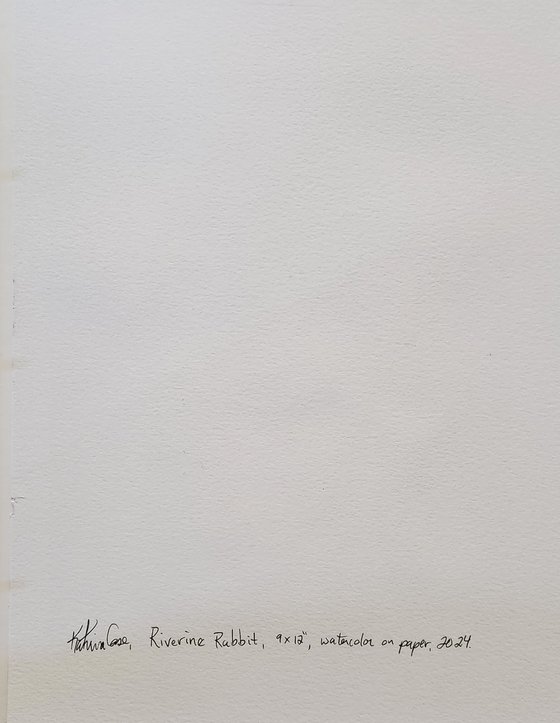 Riverine Rabbit, 9x12", watercolor on paper, 2024.